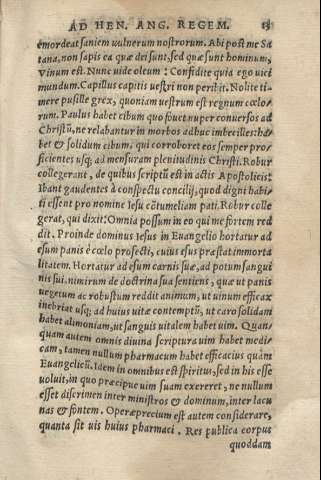 AD HEN. ANG. REGEM.
emordeat saniem uulnerum nostrorum. Abi post me Sa
tana, non sapis ea quæ dei sunt, sed quæ sunt hominum,
Vinum est. Nunc uide oleum: Confidite quia ego uici
mundum. Capillus capitis uestri non peribit. Nolite ti=
mere pusille grex, quoniam uestrum est regnum cœlo=
rum. Paulus habet cibum quo fouet nuper conuersos ad
Christũ, ne relabantur in morbos adhuc imbecilles: ha=
bet & solidum cibum, qui corroboret eos semper pro=
ficientes usq; ad mensuram plenitudinis Christi. Robur
collegerant, de quibus scriptũ est in actis Apostolicis:
Ibant gaudentes à conspectu concilij, quod digni habi=
ti essent pro nomine Iesu cõtumeliam pati. Robur colle
gerat, qui dixit: Omnia possum in eo qui me fortem red
dit. Proinde dominus Iesus in Euangelio hortatur ad
esum panis è cœlo profecti, cuius esus præstat immorta
litatem. Hortatur ad esum carnis suæ, ad potum sangui
nis sui. nimirum de doctrina sua sentiens, quæ ut panis
uegetum ac robustum reddit animum, ut uinum efficax
inebriat usq; ad huius uitæ contemptũ, ut caro solidam
habet alimoniam, ut sanguis uitalem habet uim. Quan=
quam autem omnis diuina scriptura uim habet medi=
cam, tamen nullum pharmacum habet efficacius quàm
Euangelicũ. Idem in omnibus est spiritus, sed in his esse
uoluit, in quo præcipue uim suam exereret, ne nullum
esset discrimen inter ministros & dominum, inter lacu
nas & fontem. Operæprecium est autem considerare,
quanta sit uis huius pharmaci. Res publica corpus
quoddam